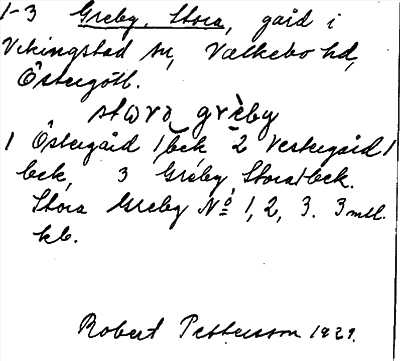 1-3 Greby, Stora, gård i
Vikingstad sn, Valkebo hd,
Östergötl.
stωra grèby
1 Östergård 1 bek 2 Vestergård 1
bek, 3 Greby Stora 1 bek.
Stora Greby No 1, 2, 3. 3 mtl.
kb.
Robert Pettersson 1929.